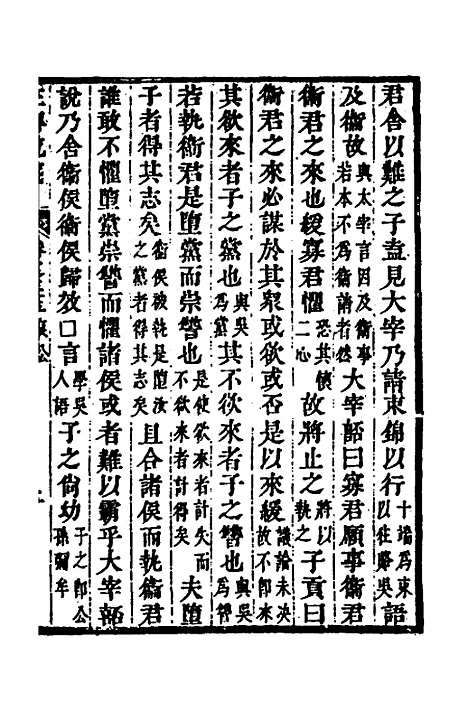 君舍以難之子盍見大宰乃請束錦以行十端爲束以往賂吳語
及衛故與太宰言因及衛事若本不爲衛請者然大宰嚭曰寡君願事衛君
衛君之來也緩寡君懼恐其懷二心故將止之將以執之子貢曰
衛君之來必謀於其衆或欲或否是以來緩議論未决故不即來
其欲來者子之黨也與吳爲黨其不欲來者子之讐也與吳爲
若執衛君是墮黨而崇讐也是使欲來者計失而不欲來者計得矣夫墮
子者得其志矣衛侯被執是墮汝之黨者得其志矣且合諸侯而執衛君
誰敢不懼墮黨崇讐而懼諸侯或者難以霸乎大宰嚭
說乃舍衛侯衛侯歸效口言學吳人語子之尙幼子之即公孫彌牟